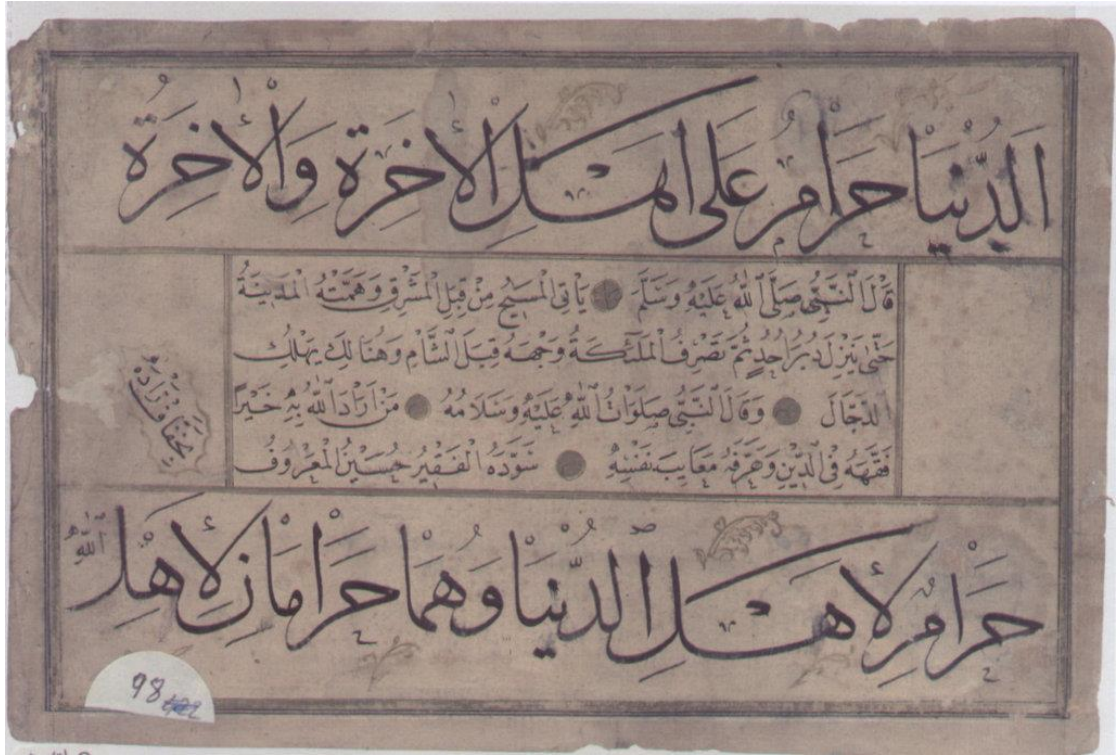 اَلدُّنْيَا حَرَامٌ عَلٰى اَهْلِ الْاٰخِرَةِ وَالْاٰخِرَةُ
قَالَ النَّبِيُّ صَلَّى اللّٰهُ عَلَيْهِ وَسَلَّمَ يَأْتِي الْمَسِيحُ مِنْ قِبَلِ الْمَشْرِقِ وَهِمَّتُهُ الْمَدِينَةُ
حَتّٰى يَنْزِلَ دُبُرَ اُحُدٍ ثُمَّ تَصْرِفُ الْمَلٰئِكَةُ وَجْهَهُ قِبَلَ الشَّامِ وَهُنَالِكَ يَهْلِكُ
الدَّجَّالُ وَقَالَ النَّبِيُّ صَلَوَاتُ اللّٰهِ عَلَيْهِ وَسَلَامُهُ مَنْ اَرَادَ اللّٰهُ بِهِ خَيْرًا
فَقَّهَهُ فِي الدِّينِ وَعَرَّفَهُ مَعَايِبَ نَفْسِهِ سَوَّدَهُ الْفَقِيرُ حُسَيْنُ الْمَعْرُوفُ
بخفاف زاده
حَرَامٌ لِاَهْلِ الدُّنْيَا وَهُمَا حَرَامَانِ لِاَهْلِ اللّٰهِ
98